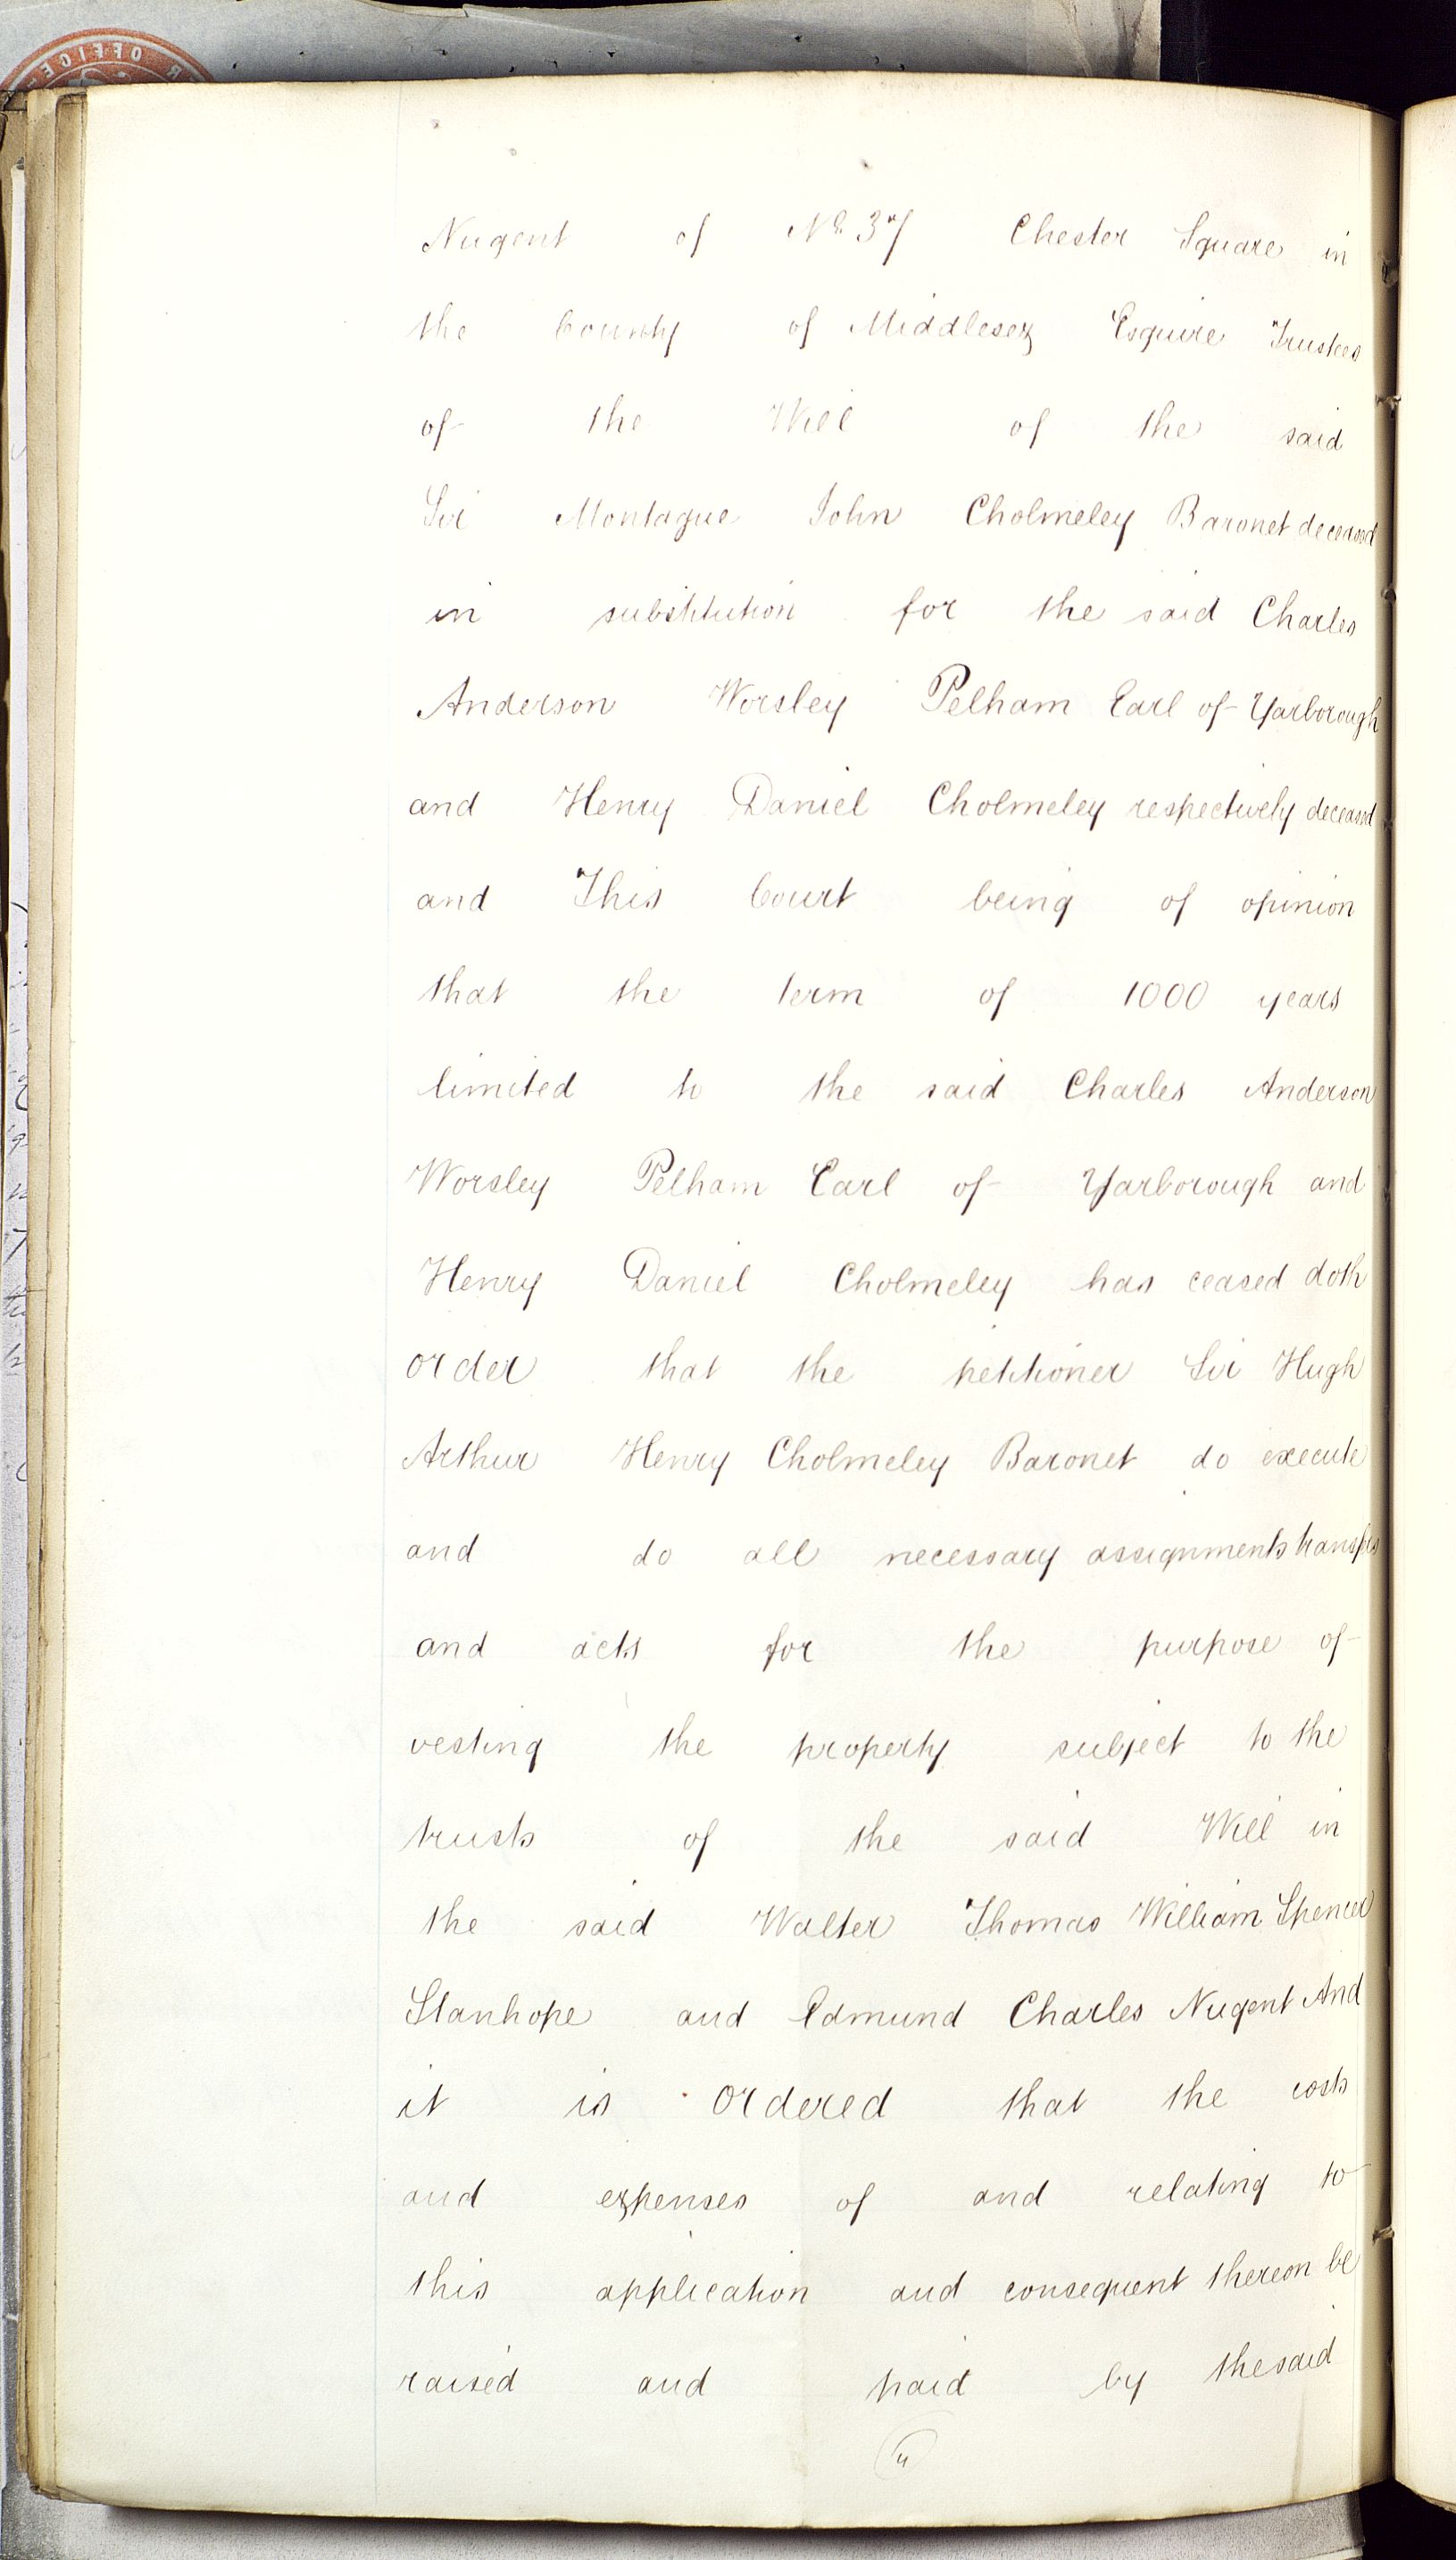 Nugent of No. 37 Chester Square in
the County of Middlesex Esquire Trustees
of the Will of the said
Sir Montague John Cholmeley Baronet deceased
in substitution for the said Charles
Anderson Worsley Pelham Earl of Yarborough
and Henry Daniel Cholmeley respectively deceased
and This Court being of opinion
that the term of 1000 years
limited to the said Charles Anderson
Worsley Pelham Earl of Yarborough and
Henry Daniel Cholmeley has ceased doth
order that the petitioner Sir Hugh
Arthur Henry Cholmeley Baronet do execute
and do all necessary assignments transfers
and acts for the purpose of
vesting the property subject to the
trusts of the said Will in
the said Walter Thomas William Spencer
Stanhope and Edmund Charles Nugent And
it is ordered that the costs
and expenses of and relating to
this application and consequent thereon be
raised and paid by the said